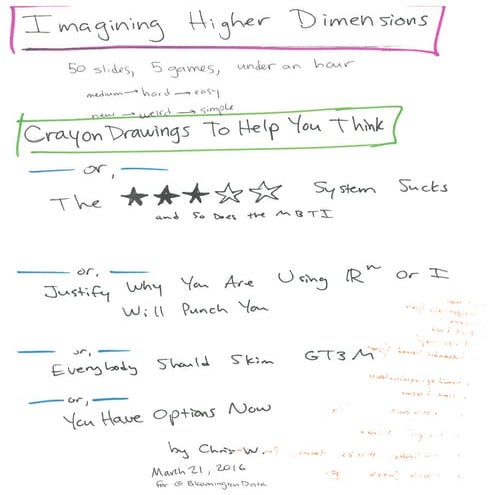 Imagining Higher Dimensions
50 slides, 5 games, under an hour
medium → hard → easy
new → weird → simple
Crayon Drawings To Help You Think
or,
The ★★★☆☆ System Sucks
and so Does the MBTI
or,
Justify Why You Are Using ℝⁿ or I
Will Punch You
or,
Everybody Should Skim GT3M
or,
You Have Options Now
by Chris W.
March 21, 2016
for @BloomingtonData